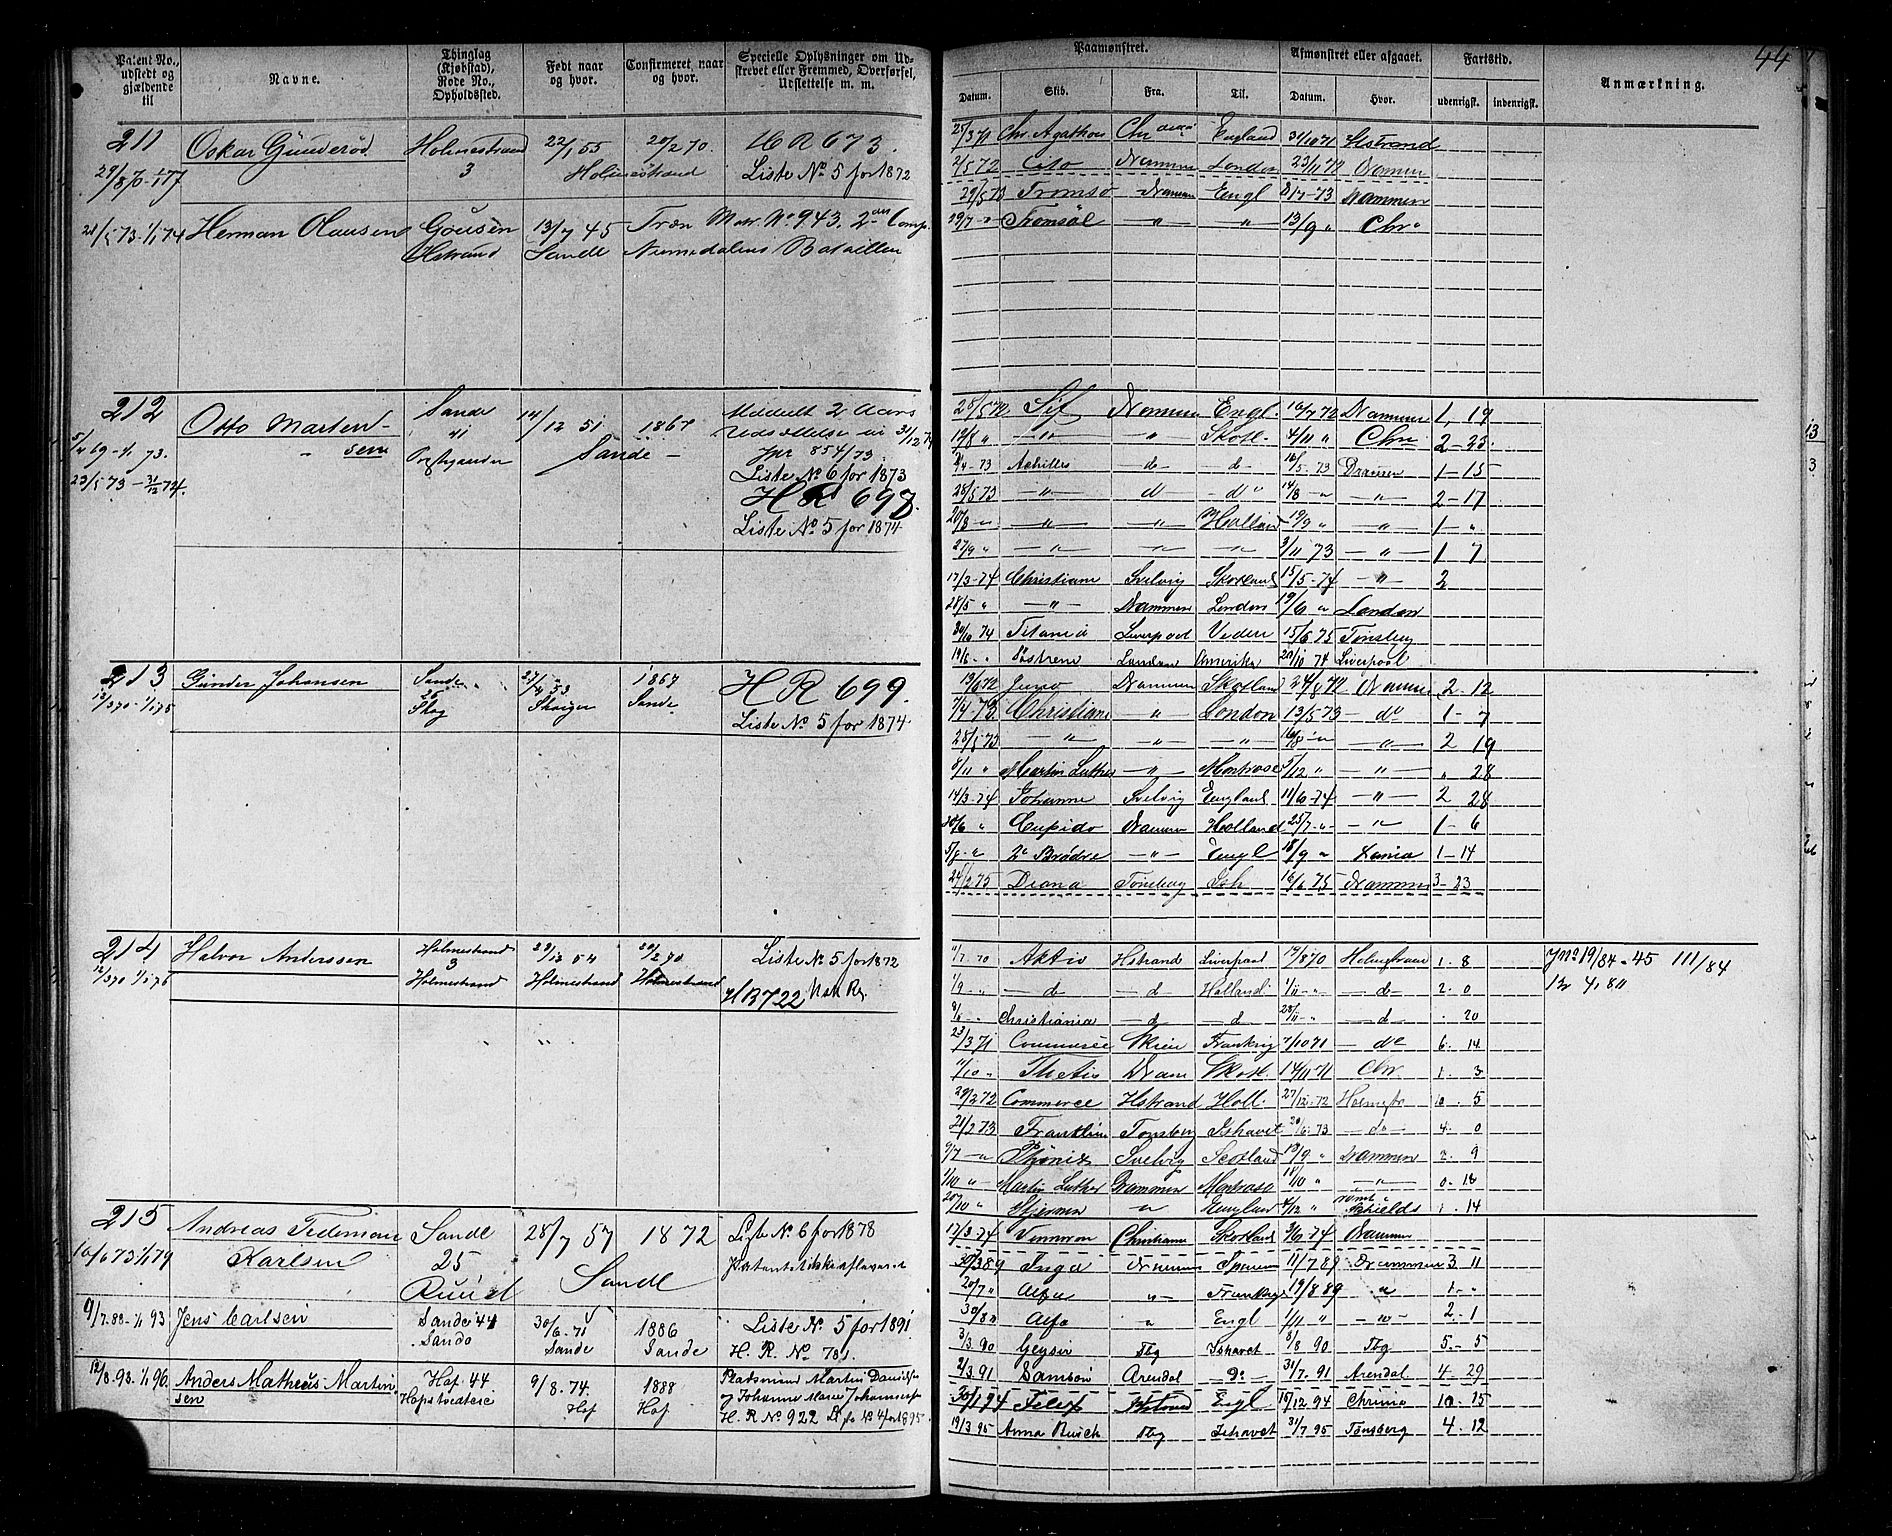 44
Patent No., udstedt og gjældende til
Navne.
Thinglag (Kjøbstad), Rode No., Opholdssted.
Født naar og hvor.
Confirmeret, naar og hvor.
Specielle Oplysninger om Udskrevet eller Fremmed, Overførsel, Udslettelse m. m.
Paamønstret.
Afmønstret eller afgaaet.
Fartstid.
Anmærkning.
Datum. Skib. Fra. Til. Datum. Hvor. udenrigsk. indenrigsk.
211 Oskar Holmestrand 22/1 55 20/2 70. H R 673.
29/8 70-1/1 77 3 Holmestrand Liste No 5 for 1872
28/5 73-1/1 74 Herman Olausen 13/7 45 Træn Mdr. No 943. 2den Comp.
Hstrand Sande Numedalens Batallion
25/3 71 Chr. Agathon England 31/10 71 Hstrand
2/5 72 Cito Drammen London 23/11 72 Drammen
29/5 73 Tromsø Drammen Engl 8/7-73 Drammen
29/7 -" Tromsøl " " 13/9 " Chra
212 Otto Martensen Sande 41 14/12 51 1867 Sande Meddelt 2 Aars Udsættelse til 31/12 74
5/4 69-1/1 73. Jnr 854/73.
23/5 73-31/12 74. Liste No 6 for 1873
H R 697.
Liste No 5 for 1874.
28/5 72 Sif Drammen Engl. 16/7 72 Drammen 1, 19
19/8 " " " Skotl. 4/11 " Chra 2-25.
2/4-73 Achilles d d 16/5-73 Drammen 1-15
28/5 73 " d d 14/8 -" " 2-17
20/8 -" " " Holland 19/9 " " 1-"
27/9 " " " " 3/11 73 " 1 7
17/3-74 Christiane Svelvig Skotland 15/5-74 " 2
28/5 " " Drammen London 19/6 " London
30/10 74 Titania Liverpool 15/6 75 Tønsberg
19/6-" Søstrene London Amerika 20/10 74 Liverpool
213 Gunder Johansen Sande 26 Skog 27/4 53 Skoger 1867 Sande H R 699.
12/3 70-1/1 75 Liste No 5 for 1874.
13/6 72 Juno Drammen Skotland 24/8 72 Drammen 2-12
7/4 73 Christiane " London 13/5 73 do 1-7
28/5 73 " " " 16/8 -" " 2 19
8/11 " Martin Luther " Montrose 5/12 " " " 28
14/3-74 Johanne Svelvig England 11/6-74 " 2 28
30/6 " Cupido Drammen Holland 25/7-" " 1-6
5/8-" 2 Brødre " Engl 18/9 " 1-14
24/2 75 Diana Tønsberg Ish 16/6 75 Drammen 3-23
214 Halvor Anderssen Holmestrand 3 29/12 54 20/2 70 Liste No 5 for 1872
12/3 70 1/1 76 Holmestrand Holmestrand Holmestrand HR 722
11/7 70 Aktiv Hstrand Liverpool 19/8 70 Holmestrand 1. 8
1/9 -" d d Holland 1/11 -" d 2. 0
8/11 -" Christiania d d 28/11 -" d . 20
23/3 71 Commerce Skien Frankrig 7/10 71 do 6. 14
11/10 " Thetis Dram Skotl. 14/11 71 Chr. 1. 3
29/2 72 Commerce Hstrand Holl. 27/12. 72 Holmestr 10. 5
21/2 73 Franklin Tønsberg Ishavet 20/6. 73 do 4. 0
9/7 -" Phønix Svelvig Scotland 19/9 " Drammen 2. 9
1/10 " Martin Luther Drammen Montrose 18/10 " " 0. 18
20/10 " Stjernen " England 4/12 " rømt i Schields 1. 14
Jno 19/84 - 45 111/84
215 Andreas Tidemann Karlsen Sande 25 28/7 57 Sande 1872 Liste No. 6 for 1878
10/6 73 1/1 79 Patentet ikke afleveret
17/3-74 Christiania Skotland 3/6 74 Drammen
30/3 89 Inga Drammen Spanien 11/7 89 Drammen 3 11
20/7 " Alfa " Frankrige 19/8 89 " 1-"
30/8 " Alfa " Engl 1/11 " " 2-1
3/3. 90 Geysir Tbg Ishavet 8/8 90 Tbg 5.-5
2/3. 91 Samson Arendal Do 31/7. 91 Arendal 4-29
30/1 94 Felix Hstrand Engl 15/12 94 Chrania 10-15
19/3 95 Anna Busch Tbg Ishavet 31/7. 95 Tønsberg 4-12
9/7-88-1/1 93. Jens Carlsen Sande 44 Sande 30/6-71 Sande 1886 Sande Liste No. 5 for 1891
H. R. No 781.
12/8 93-1/1 96. Anders Matheus Martinsen Hof. 44 9/8. 74. Hof 1888 Hof Pladsmand Martin Danielsen
og Johanne Marie Johannesd
H. R No 922 Liste No 4 for 1895